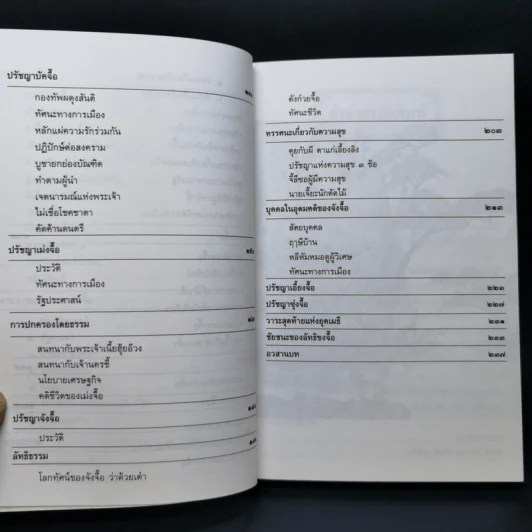 ปรัชญาบัคจื้อ
กองทัพผดุงสันติ
ทัศนะทางการเมือง
หลักแผ่ความรักร่วมกัน
ปฏิปักษ์ต่อสงคราม
บูชายกย่องบัณฑิต
ทำตามผู้นำ
เจตนารมณ์แห่งพระเจ้า
ไม่เชื่อโชคชาตา
คัดค้านดนตรี
ปรัชญาเม่งจื้อ
ประวัติ
ทัศนะทางการเมือง
รัฐประศาสน์
การปกครองโดยธรรม
สนทนากับพระเจ้าเนี้ยฮุ่ยอ๊วง
สนทนากับเจ้านครชี้
นโยบายเศรษฐกิจ
คติชีวิตของเม่งจื้อ
ปรัชญาจังจื้อ
ประวัติ
ลัทธิธรรม
โลกทัศน์ของจังจื้อ ว่าด้วยเต๋า
ตังก๋วยจื้อ
ทัศนะชีวิต
ทรรศนะเกี่ยวกับความสุข ๒๐๓
คุยกับผี ตาแก่เลี้ยงลิง
ปรัชญาแห่งความสุข ๓ ข้อ
จี้ลีซอผู้มีความสุข
นายเจี๊ยะนักตัดไม้
บุคคลในอุดมคติของจังจื้อ ๒๑๓
สัตยบุคคล
ฤาษีบ้าน
หลีหัมหมอดูผู้วิเศษ
ทัศนะทางการเมือง
ปรัชญาเอี้ยงจื้อ ๒๒๓
ปรัชญาซุ่งจื้อ ๒๒๗
วาระสุดท้ายแห่งยุคเมธี ๒๓๑
ชัยชนะของลัทธิขงจื้อ ๒๓๔
อวสานบท ๒๓๗